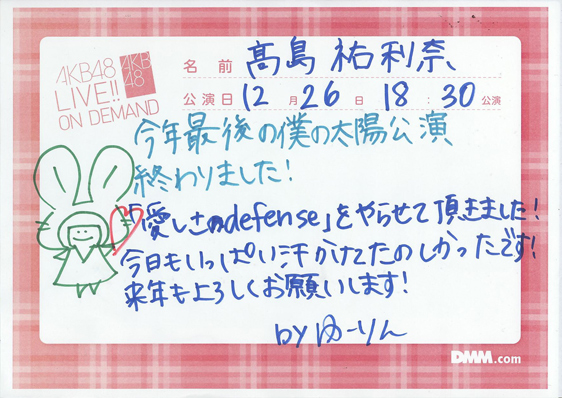 AKB48
LIVE!!
ON DEMAND
AKB
48
名前 髙島 祐利奈、
公演日 12月26日 18:30公演
今年最後の僕の太陽公演
終わりました!
「愛しさのdefense」をやらせて頂きました!
今日もいっぱい汗かけてたのしかったです!
来年もよろしくお願いします!
by ゆーりん
DMM.com